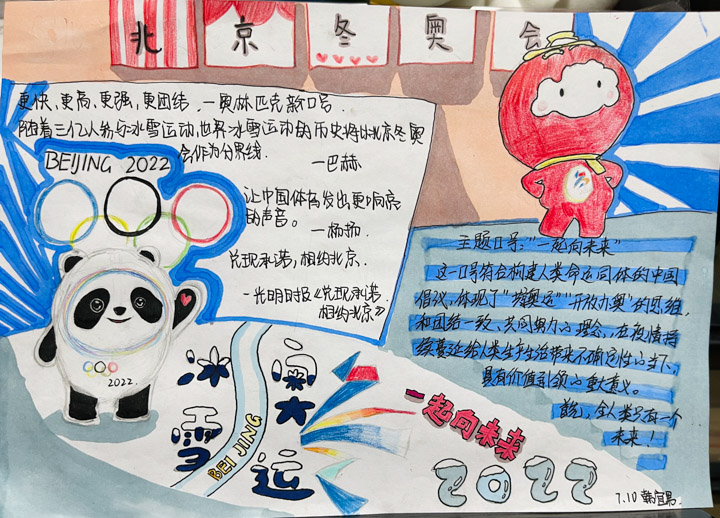 北京冬奥会
更快、更高、更强,更团结. —奥林匹克新口号.
随着三亿人参与冰雪运动,世界冰雪运动的历史将以北京冬奥
会作为分界线.
—巴赫
BEIJING 2022
让中国体育发出更响亮
的声音。
—杨扬.
兑现承诺,相约北京.
—光明日报《兑现承诺
相约北京》
主题口号:“一起向未来”
这一口号符合构建人类命运共同体的中国
倡议,体现了“
”“开放办奥”的思想,
和团结一致、共同努力的理念,在疫情持
续蔓延给人类生产生活带来不确定性的当下,
具有价值引领的重大意义。
全人类只有一个
未来!
2022.
冰雪
奥运
BEI JING
一起向未来
2022
7.10 韩宜